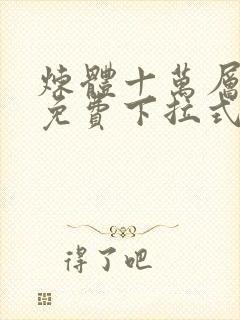 煉體十萬層
免費下拉式
得了吧